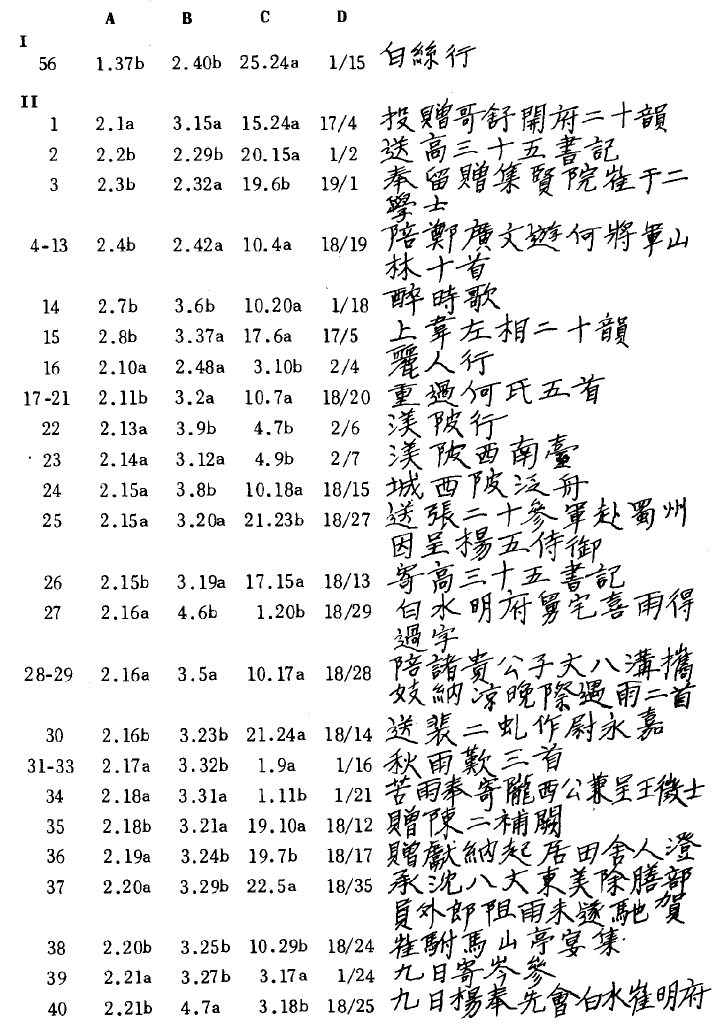 A B C D
I
56 1.37b 2.40b 25.24a 1/15 白絲行
II
1 2.1a 3.15a 15.24a 17/4 投贈哥舒開府二十韻
2 2.2b 2.29b 20.15a 1/2 送高三十五書記
3 2.3b 2.32a 19.6b 19/1 奉留贈集賢院崔于二
學士
4-13 2.4b 2.42a 10.4a 18/19 陪鄭廣文遊何將軍山
林十首
14 2.7b 3.6b 10.20a 1/18 醉時歌
15 2.8b 3.37a 17.6a 17/5 上韋左相二十韻
16 2.10a 2.48a 3.10b 2/4 麗人行
17-21 2.11b 3.2a 10.7a 18/20 重過何氏五首
22 2.13a 3.9b 4.7b 2/6 渼陂行
23 2.14a 3.12a 4.9b 2/7 渼陂西南臺
24 2.15a 3.8b 10.18a 18/15 城西陂泛舟
25 2.15a 3.20a 21.23b 18/27 送張二十參軍赴蜀州
因呈楊五侍御
26 2.15b 3.19a 17.15a 18/13 寄高三十五書記
27 2.16a 4.6b 1.20b 18/29 白水明府舅宅喜雨得
過字
28-29 2.16a 3.5a 10.17a 18/28 陪諸貴公子丈八溝攜
妓納涼晚際遇雨二首
30 2.16b 3.23b 21.24a 18/14 送裴二虬作尉永嘉
31-33 2.17a 3.32b 1.9a 1/16 秋雨歎三首
34 2.18a 3.31a 1.11b 1/21 苦雨奉寄隴西公兼呈王徵士
35 2.18b 3.21a 19.10a 18/12 贈陳二補闕
36 2.19a 3.24b 19.7b 18/17 贈獻納起居田舍人澄
37 2.20a 3.29b 22.5a 18/35 承沈八丈東美除膳部
員外郎阻雨未遂馳賀
38 2.20b 3.25b 10.29b 18/24 崔駙馬山亭宴集
39 2.21a 3.27b 3.17a 1/24 九日寄岑參
40 2.21b 4.7a 3.18b 18/25 九日楊奉先會白水崔明府